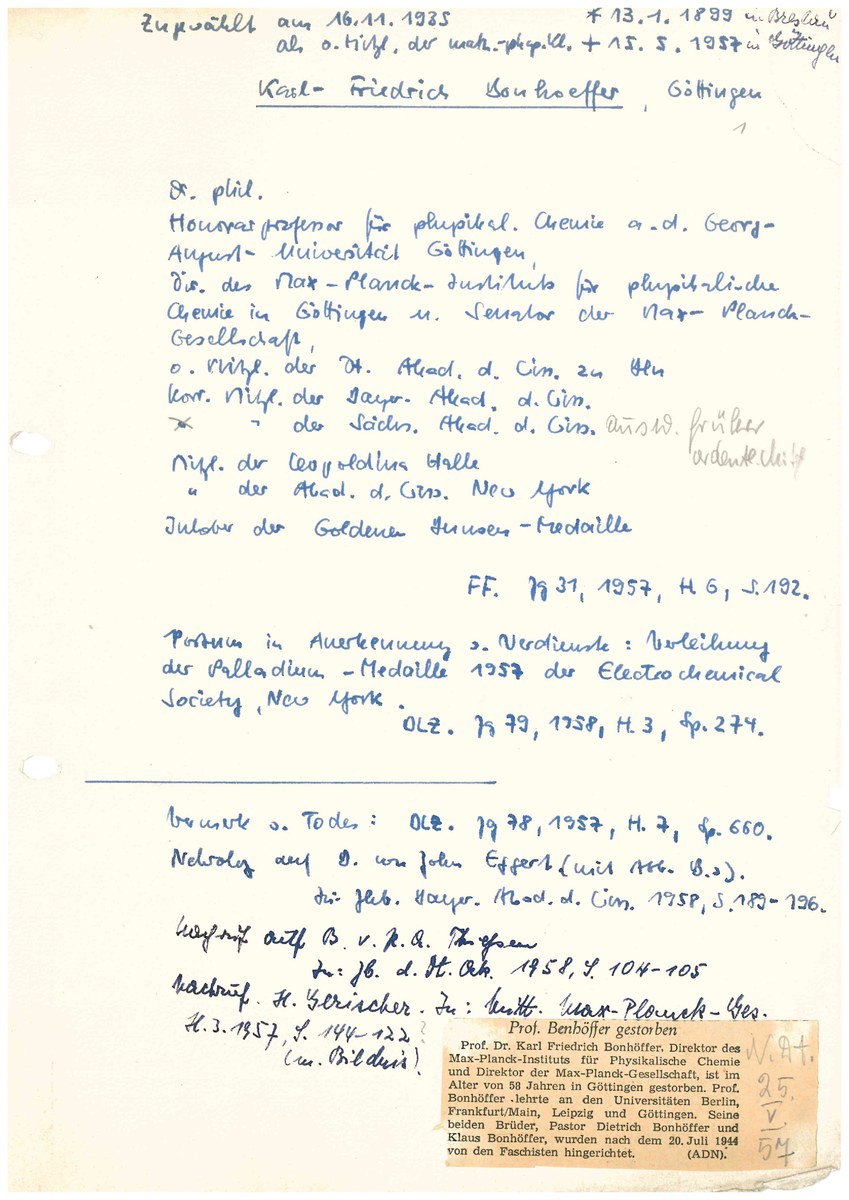 Zugewählt am 16.11.1935 * 13.1.1899 in Breslau
als o. Mitgl. der math.-phys. Kl. + 15.5.1957 in Göttingen
Karl-Friedrich Bonhoeffer, Göttingen
1
Dr. phil.
Honorarprofessor für physikal. Chemie a.d. Georg-
August-Universität Göttingen,
Dir. des Max-Planck-Instituts für physikalische
Chemie in Göttingen u. Senator der Max-Planck-
Gesellschaft,
o. Mitgl. der Dt. Akad. d. Wiss. zu Bln
Korr. Mitgl. der Bayer. Akad. d. Wiss.
" der Sächs. Akad. d. Wiss. ausw. früher
ordentl. Mitgl
Mitgl. der Leopoldina Halle
" der Akad. d. Wiss. New York
Inhaber der Goldenen Bunsen-Medaille
FF. Jg 31, 1957, H. 6, S. 192.
Postum in Anerkennung s. Verdienste: Verleihung
der Palladium-Medaille 1957 der Electrochemical
Society, New York.
DLZ. Jg 79, 1958, H. 3, Sp. 274.
Vermerk s. Todes: DLZ. Jg 78, 1957, H. 7, Sp. 660.
Nekrolog auf B. von John Eggert (mit Abb. B.s).
In: Jhb. Bayer. Akad. d. Wiss. 1958, S. 189-196.
Nachruf auf B. v. P. A. Thiessen
In: Jb. d. Dt. Ak. 1958, S. 104-105
Nachruf. H. Gerischer. In: Mitt. Max-Planck-Ges.
H. 3. 1957, S. 144-122 ?
(m. Bildnis)
Prof. Benhöffer gestorben
Prof. Dr. Karl Friedrich Bonhöffer, Direktor des
Max-Planck-Instituts für Physikalische Chemie
und Direktor der Max-Planck-Gesellschaft, ist im
Alter von 58 Jahren in Göttingen gestorben. Prof.
Bonhöffer lehrte an den Universitäten Berlin,
Frankfurt/Main, Leipzig und Göttingen. Seine
beiden Brüder, Pastor Dietrich Bonhöffer und
Klaus Bonhöffer, wurden nach dem 20. Juli 1944
von den Faschisten hingerichtet. (ADN).
N. Dt.
25.
V.
57